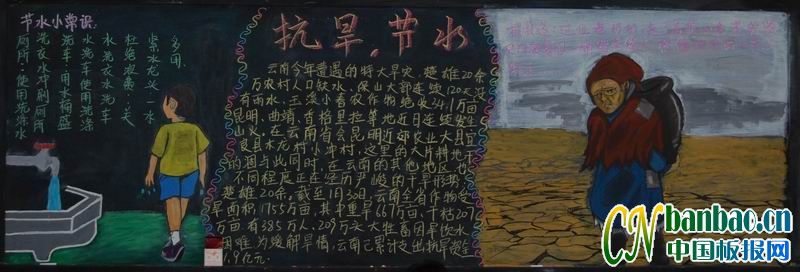 节水小常识
多用
紧水龙头一水
杜绝浪费一天
水洗衣水洗车
洗车使用洗涤
洗车用水桶盛
洗衣水冲厕所
厕所:使用洗涤水
抗旱、节水
云南今年遭遇的特大旱灾,楚雄20余
万农村人口缺水、保山大部连续120天没
有雨水、玉溪小春农作物绝收34.1万亩
昆明、曲靖、香格里拉等地近日连续发生
山火。在云南省会昆明近郊农业大县宜
良县木龙村小牛村,这里的大片耕地干
的涸与此同时,在云南的其他地区也
不同程度正在经历严峻的干旱形势,
楚雄20余。截至1月30日云南全省作物受
旱面积1755万亩,其中重旱667万亩,干枯207
万亩有385万人、209万头大牲畜因旱饮水
困难为缓解旱情,云南已累计支出抗旱资金
1.9亿元.
CNbanbao.cn
中国板报网